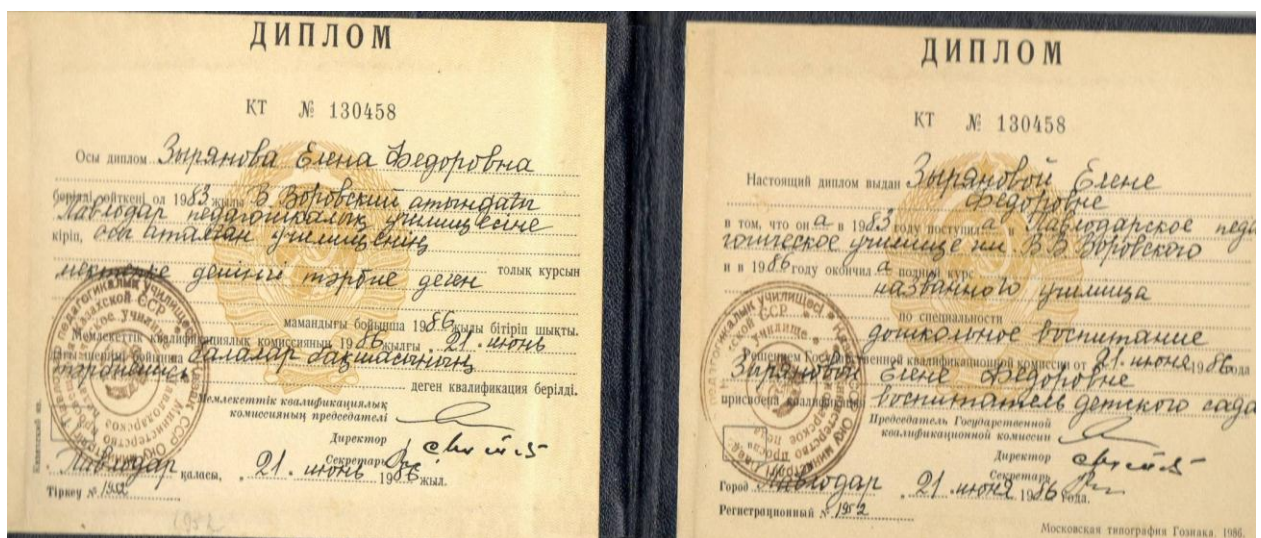 ДИПЛОМ
ҚТ № 130458
Осы диплом Зырянова Елена Федоровна
берілді, өйткені ол 1983 жылы В. Воровский атындағы
Павлодар педагогикалық училищесіне
кіріп, осы аталған училищенің
мектепке дейінгі тәрбие деген толық курсын
мамандығы бойынша 1986 жылы бітіріп шықты.
Мемлекеттік квалификациялық комиссияның 1986 жылғы „21. июнь
шешімі бойынша балалар бақшасының
тәрбиешісі
деген квалификация берілді.
Мемлекеттік квалификациялық
комиссияның председателі
Директор
Секретарь
Павлодар қаласы, „21. июнь 1986 жыл.
Тіркеу № 1952
1952
Казахский яз.
ДИПЛОМ
ҚТ № 130458
Настоящий диплом выдан Зыряновой Елене
Федоровне
в том, что он а в 1983 году поступил а в Павлодарское педа
гогическое училище им. В.В. Воровского
и в 1986 году окончил а полный курс
названного училища
по специальности
дошкольное воспитание
Решением Государственной квалификационной комиссии от 21. июня 1986 года
Зыряновой Елене Федоровне
присвоена квалификация воспитатель детского сада
Председатель Государственной
квалификационной комиссии
Директор
Секретарь
Город Павлодар „21. июня 1986 года.
Регистрационный № 1952
Московская типография Гознака. 1986.